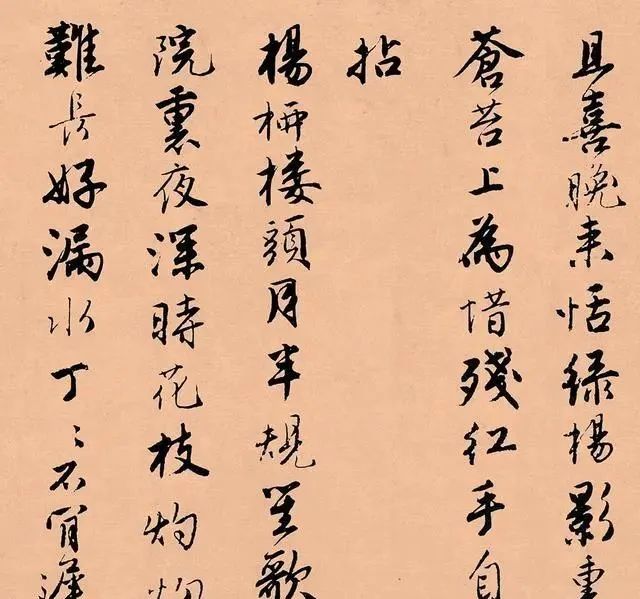 且喜晚来恬緑楊影重
蒼苔上為惜殘紅手自
拈
楊柳楼頭月半規笙歌
院裏夜深時花枝灼灼
難長好漏水丁〻不肯遲